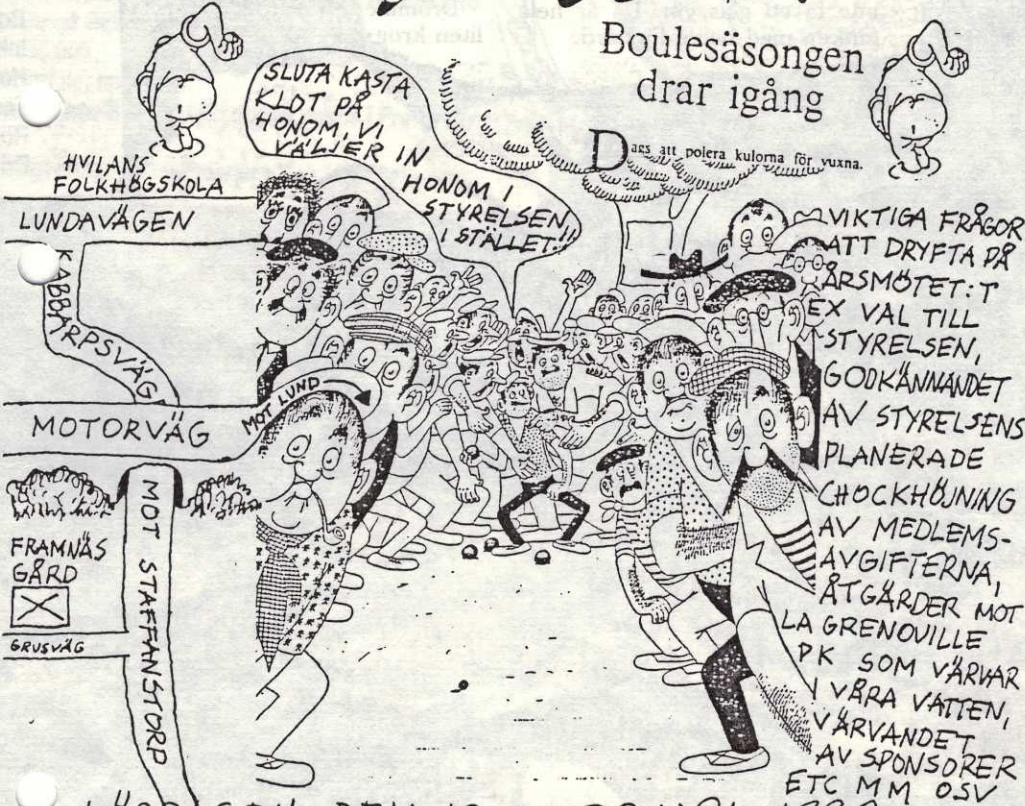 Boulesäsongen
drar igång
Dags att polera kulorna för vuxna.
SLUTA KASTA
KLOT PÅ
HONOM, VI
VÄLJER IN
HONOM I
STYRELSEN
I STÄLLET!
HVILANS
FOLKHÖGSKOLA
LUNDAVÄGEN
KABBARPSVÄG
MOTORVÄG
MOT LUND
MOT STAFFANSTORP
FRAMNÄS
GÅRD
GRUSVÄG
VIKTIGA FRÅGOR
ATT DRYFTA PÅ
ÅRSMÖTET: T
EX VAL TILL
STYRELSEN,
GODKÄNNANDET
AV STYRELSENS
PLANERADE
CHOCKHÖJNING
AV MEDLEMS-
AVGIFTERNA,
ÅTGÄRDER MOT
LA GRENOVILLE
PK SOM VÄRVAR
I VÅRA VATTEN,
VÄRVANDET
AV SPONSORER
ETC MM OSV